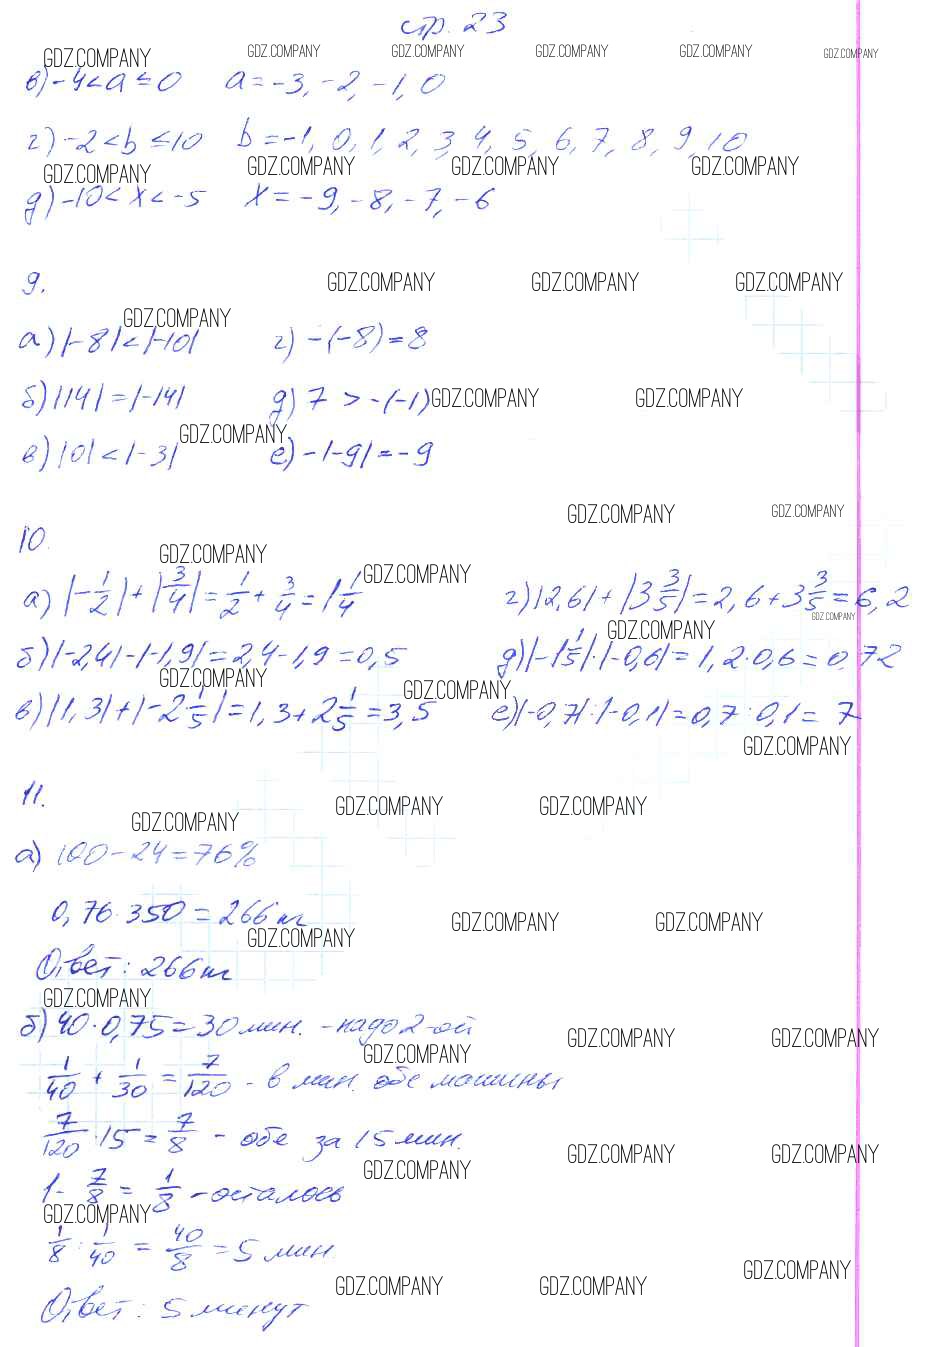 стр. 23
GDZ.COMPANY GDZ.COMPANY GDZ.COMPANY GDZ.COMPANY GDZ.COMPANY GDZ.COMPANY
в) -4 < a ≤ 0 a = -3, -2, -1, 0
г) -2 < b ≤ 10 b = -1, 0, 1, 2, 3, 4, 5, 6, 7, 8, 9, 10
GDZ.COMPANY GDZ.COMPANY GDZ.COMPANY GDZ.COMPANY
д) -10 < x < -5 x = -9, -8, -7, -6
9.
GDZ.COMPANY GDZ.COMPANY GDZ.COMPANY
GDZ.COMPANY
а) |-8| < |-10| г) -(-8) = 8
б) |14| = |-14| д) 7 > -(-1) GDZ.COMPANY GDZ.COMPANY
GDZ.COMPANY
в) |0| < |-3| е) -|-9| = -9
GDZ.COMPANY GDZ.COMPANY
10.
GDZ.COMPANY GDZ.COMPANY
а) |-1/2| + |3/4| = 1/2 + 3/4 = 1 1/4 г) |2,6| + |3 3/5| = 2,6 + 3 3/5 = 6,2
GDZ.COMPANY GDZ.COMPANY
б) |-2,4| - |-1,9| = 2,4 - 1,9 = 0,5 д) |-1 1/5| · |-0,6| = 1,2 · 0,6 = 0,72
GDZ.COMPANY GDZ.COMPANY
в) |1,3| + |-2 1/5| = 1,3 + 2 1/5 = 3,5 е) |-0,7| : |-0,1| = 0,7 : 0,1 = 7
GDZ.COMPANY
11.
GDZ.COMPANY GDZ.COMPANY GDZ.COMPANY
а) 100 - 24 = 76%
0,76 · 350 = 266 т
GDZ.COMPANY GDZ.COMPANY GDZ.COMPANY
Ответ: 266 т
GDZ.COMPANY
б) 40 · 0,75 = 30 мин. - надо 2-ой
GDZ.COMPANY GDZ.COMPANY GDZ.COMPANY
1/40 + 1/30 = 7/120 - в мин. обе машины
7/120 · 15 = 7/8 - обе за 15 мин.
GDZ.COMPANY GDZ.COMPANY GDZ.COMPANY
1 - 7/8 = 1/8 - осталось
GDZ.COMPANY
1/8 : 1/40 = 40/8 = 5 мин.
GDZ.COMPANY GDZ.COMPANY GDZ.COMPANY
Ответ: 5 минут